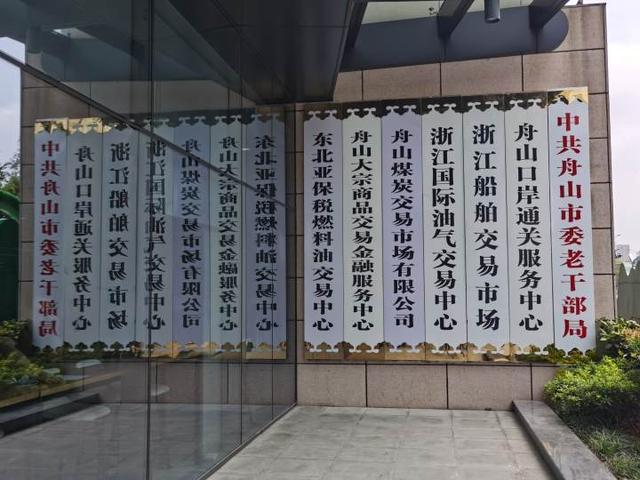 中共舟山市委老干部局
舟山口岸通关服务中心
浙江船舶交易市场
浙江国际油气交易中心
舟山煤炭交易市场有限公司
舟山大宗商品交易金融服务中心
东北亚保税燃料油交易中心
东北亚保税燃料油交易中心
舟山大宗商品交易金融服务中心
舟山煤炭交易市场有限公司
浙江国际油气交易中心
浙江船舶交易市场
舟山口岸通关服务中心
中共舟山市委老干部局